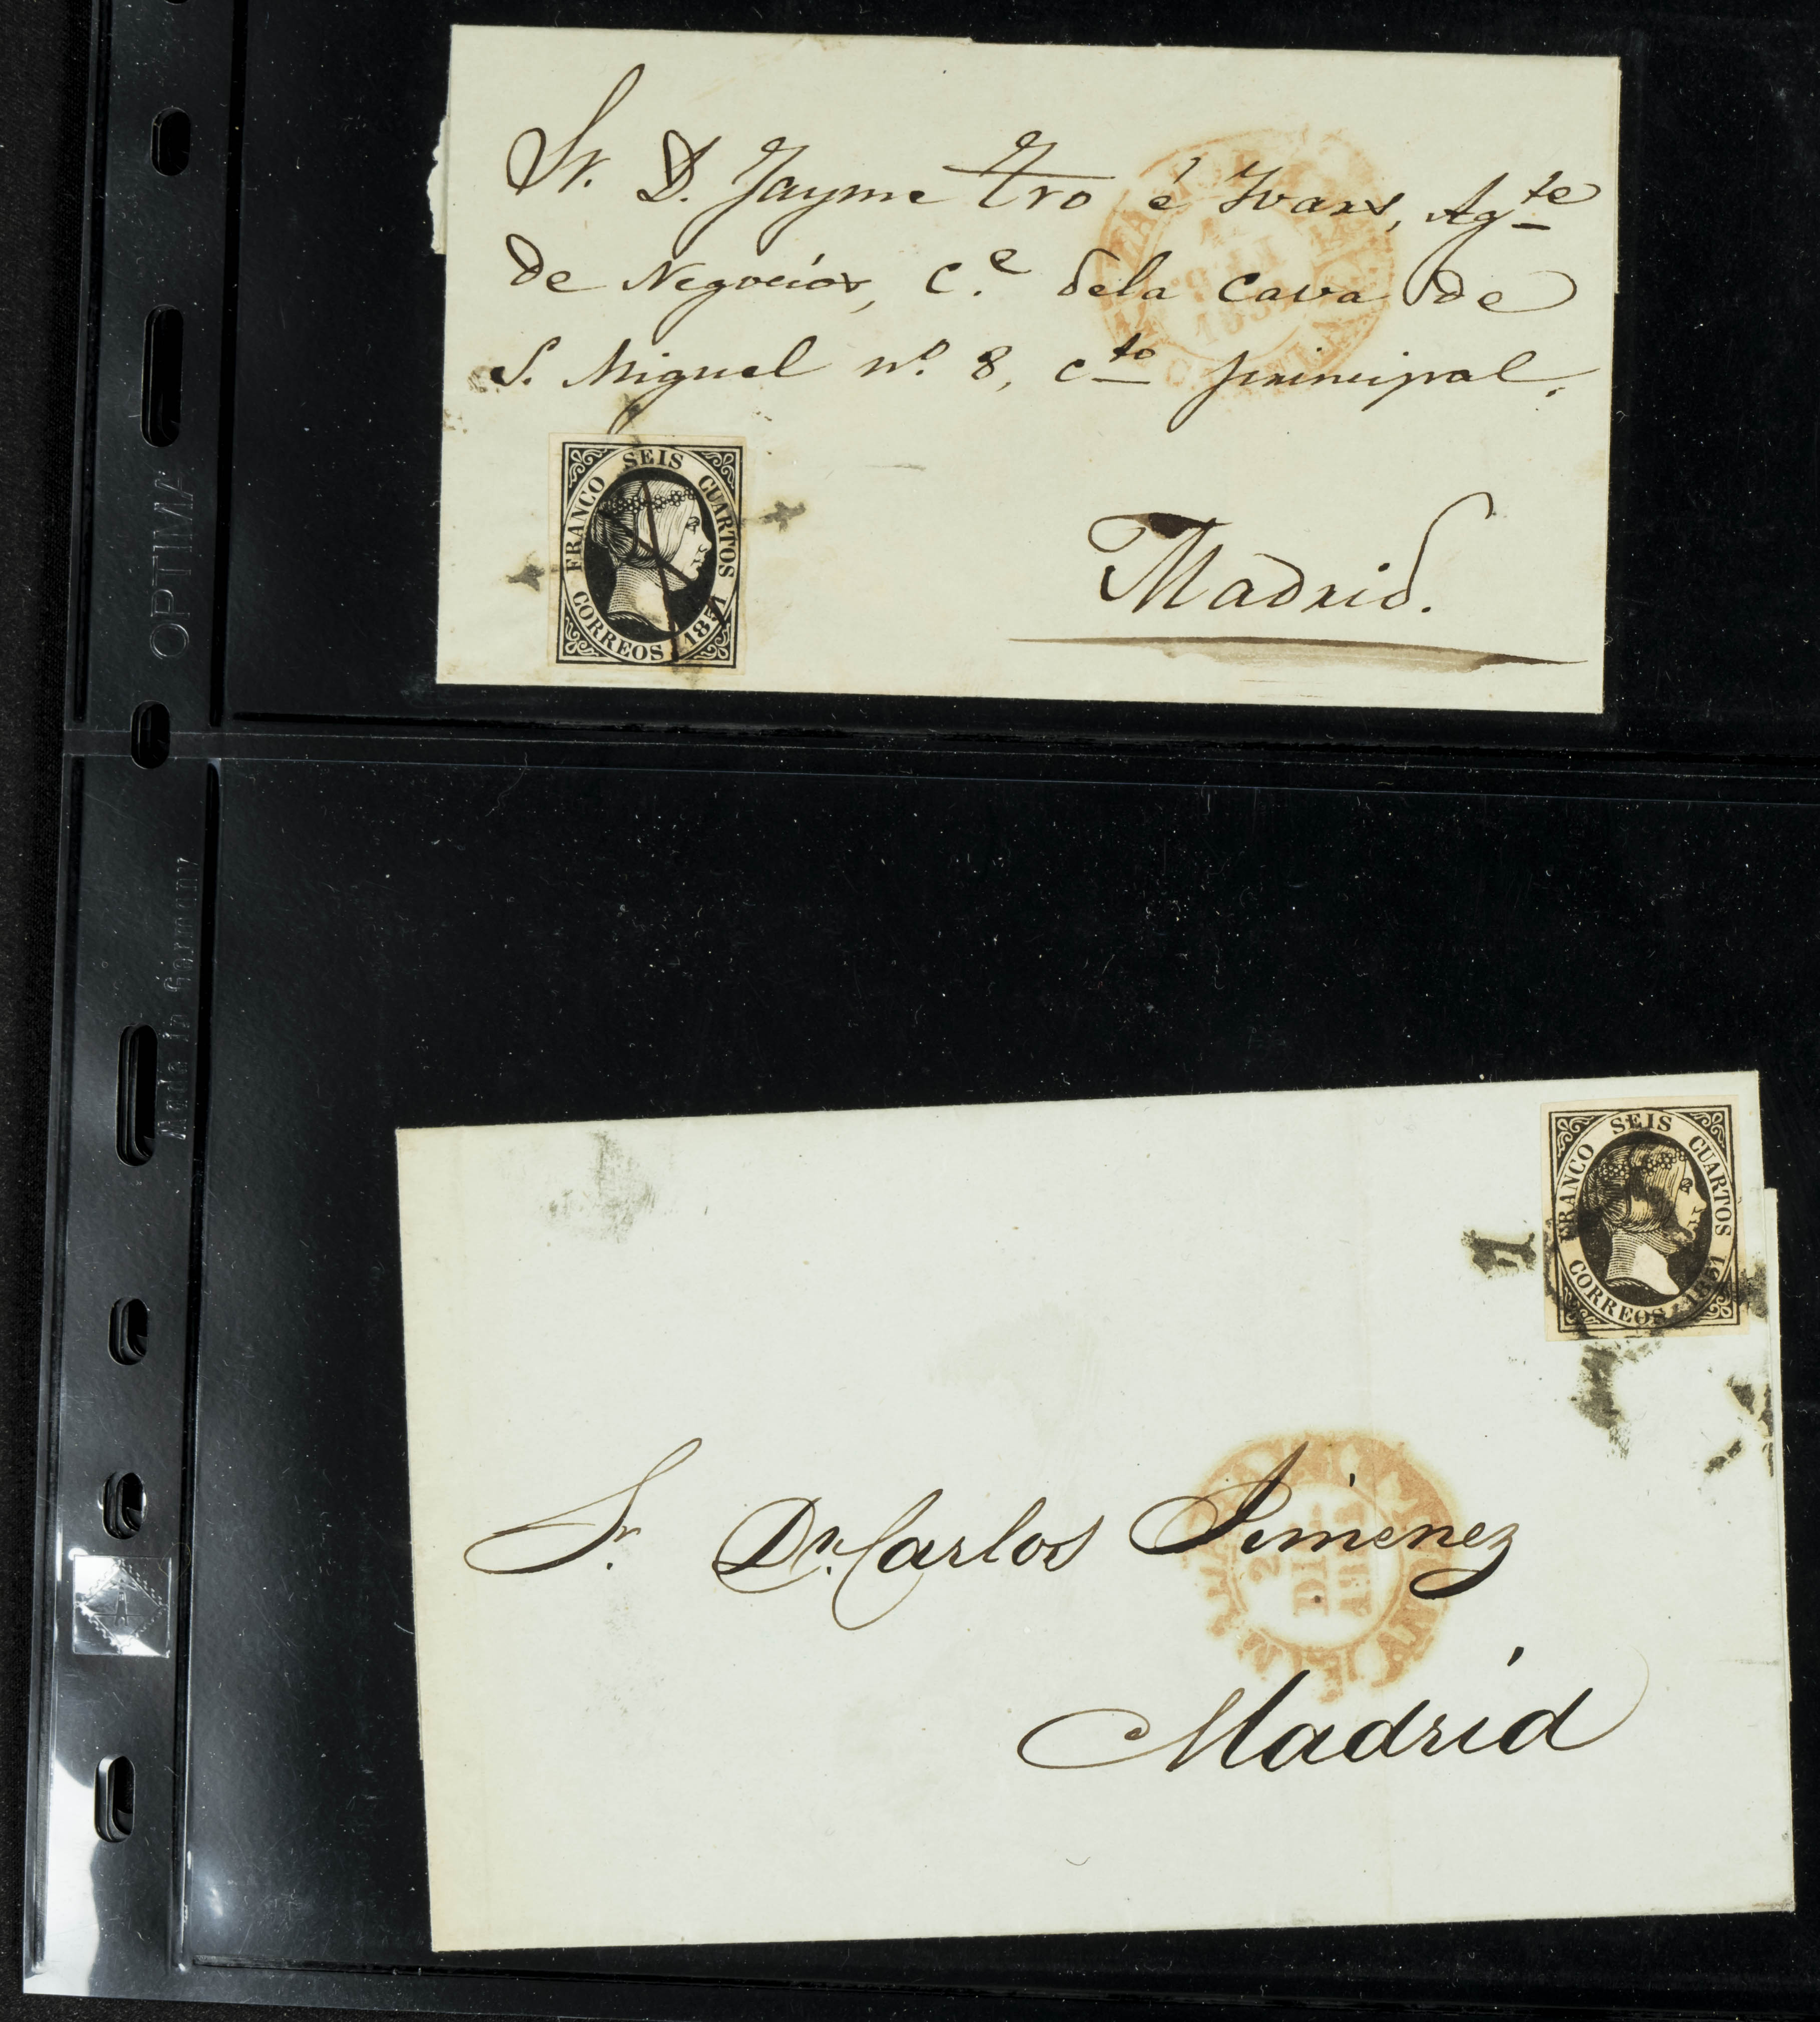 Sr. D. Jayme Tro é Ivars, Ag.te
de Negocios, C.e dela Cava de
S. Miguel nº. 8, cto principal.
Madrid.
FRANCO SEIS CUARTOS
CORREOS 1851
OPTIMA
Made in Germany
FRANCO SEIS CUARTOS
CORREOS 1851
1
Sr. Dn. Carlos Jimenez
Madrid